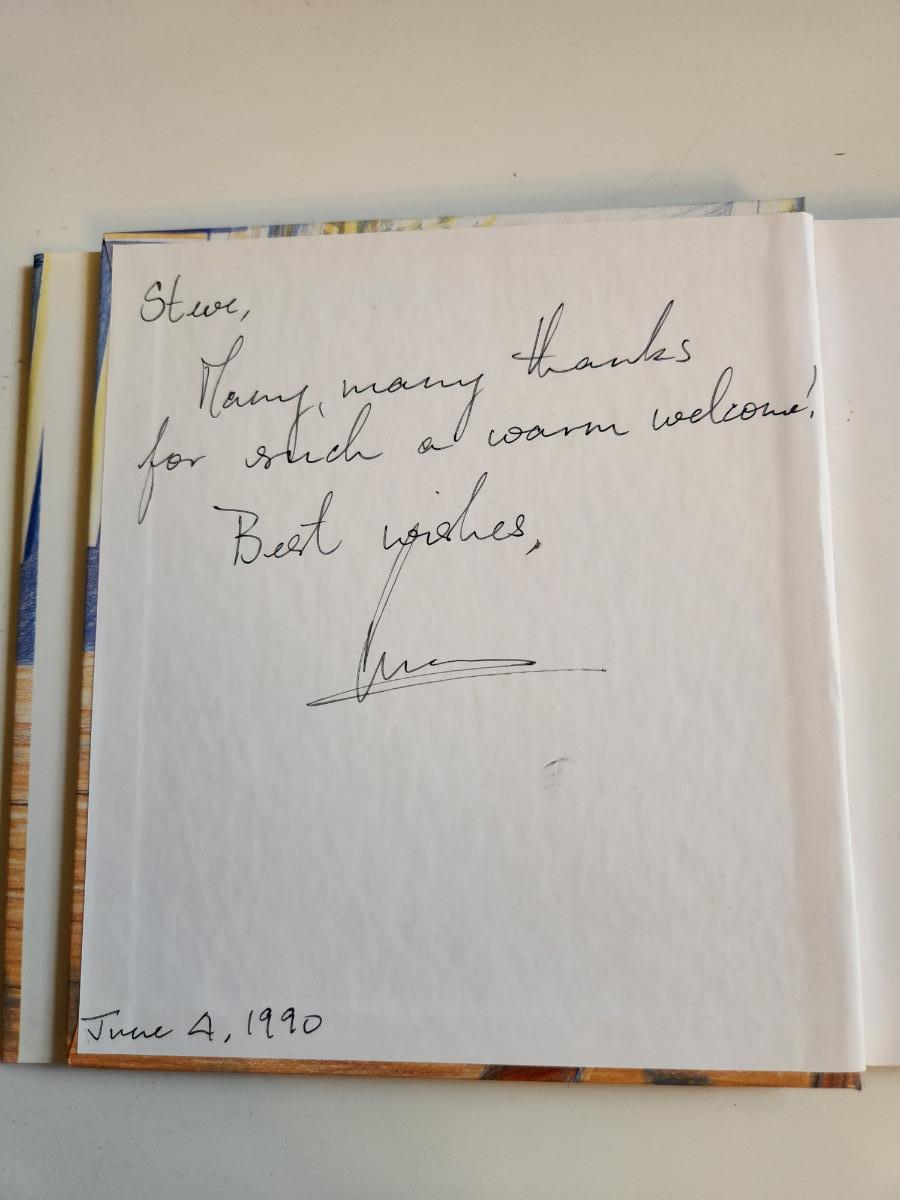 Steve,
Many, many thanks
for such a warm welcome!
Best wishes,
June 4, 1990